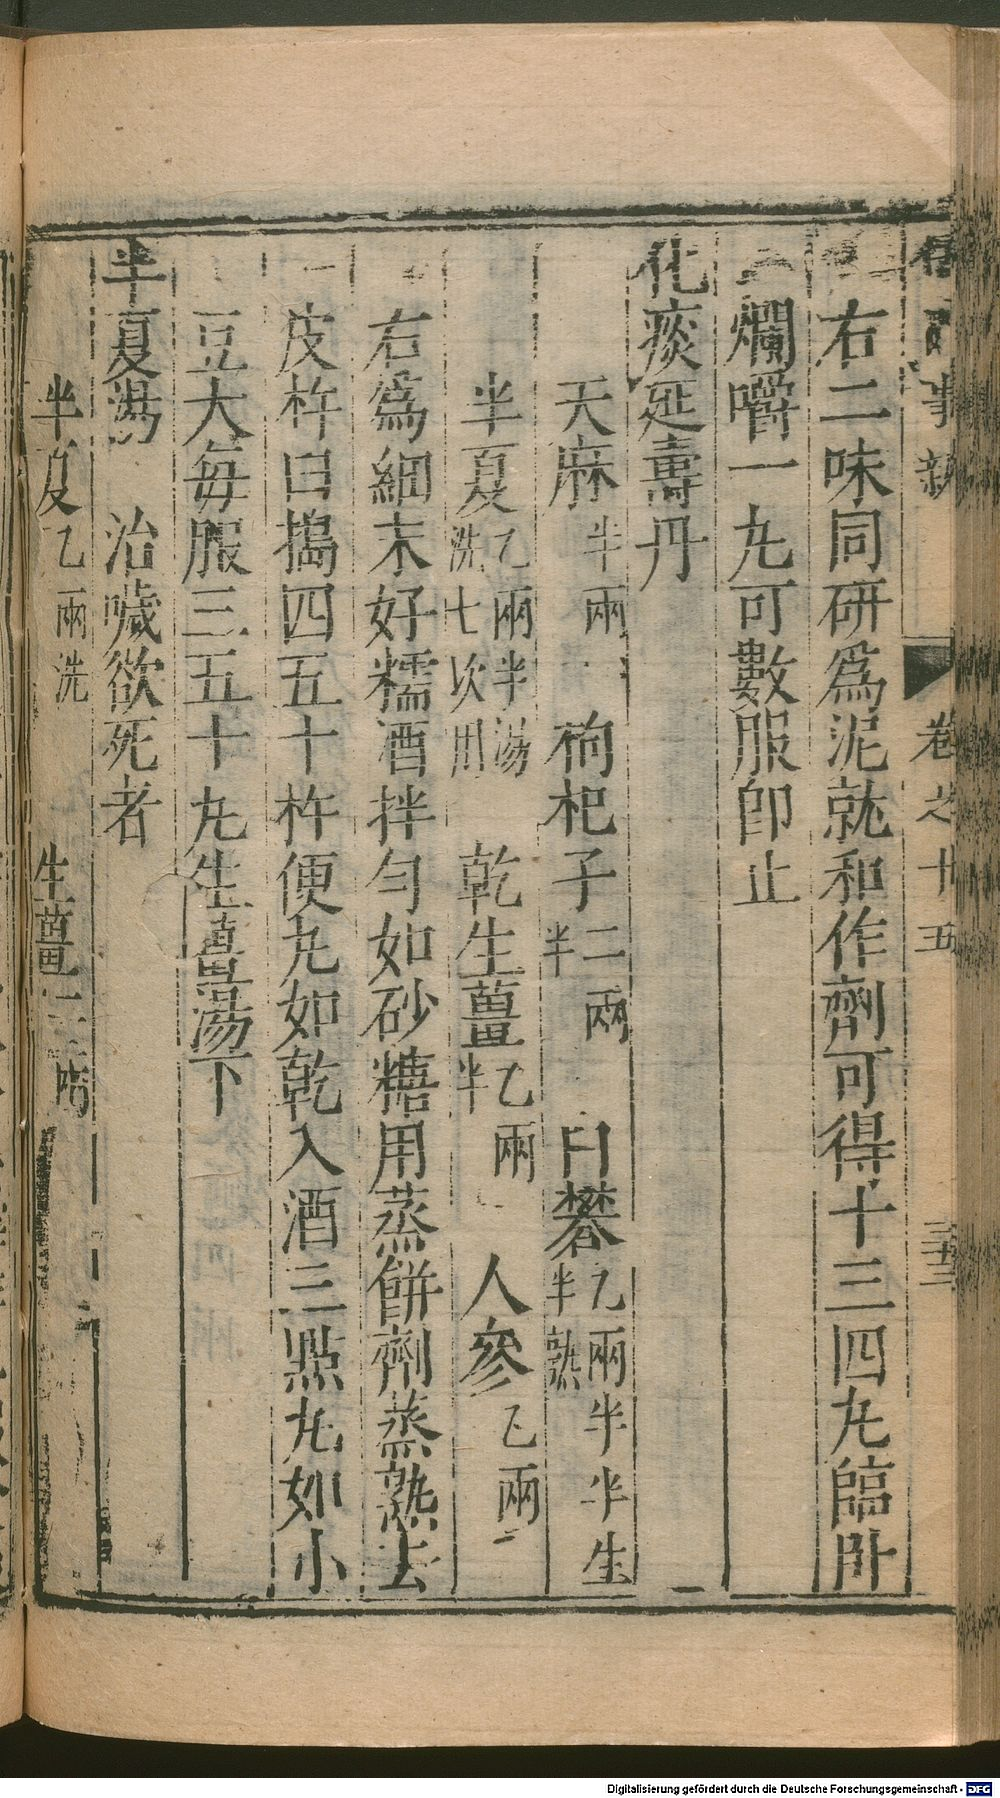 儒門事親 卷之十五
右二味同研爲泥就和作劑可得十三四丸臨卧
爛嚼一丸可數服即止
化痰延壽丹
天麻半兩 枸杞子二兩半 白礬乙兩半半生半熟
半夏乙兩半湯洗七次用 乾生薑乙兩半 人參乙兩
右爲細末好糯酒拌勻如砂糖用蒸餅劑蒸熟去
皮杵臼搗四五十杵便丸如乾入酒三點丸如小
豆大每服三五十丸生薑湯下
半夏湯 治噦欲死者
半夏乙兩洗 生薑二兩
Digitalisierung gefördert durch die Deutsche Forschungsgemeinschaft - DFG